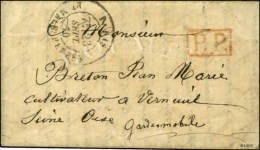 Monsieur
P.P.
Breton Jean Marié
cultivateur à Verneuil
Seine Oise
Gardemobile